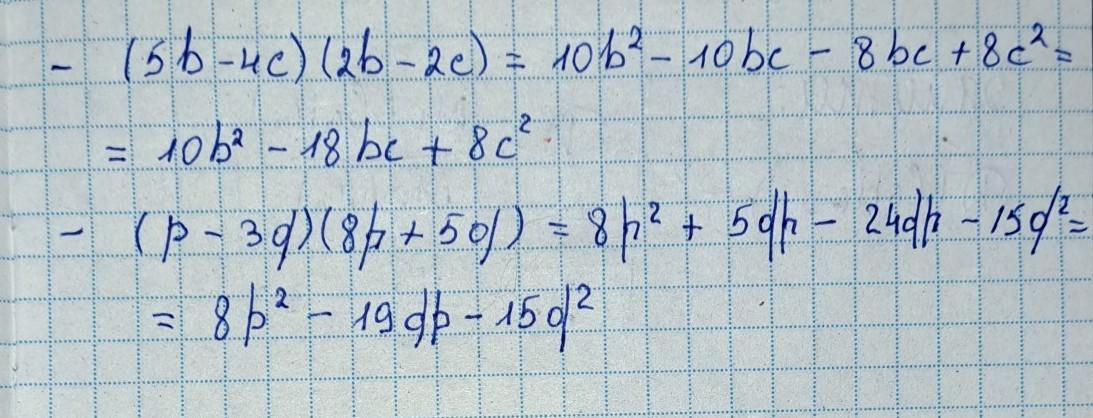 - (5b - 4c)(2b - 2c) = 10b² - 10bc - 8bc + 8c² =
= 10b² - 18bc + 8c²
- (p - 3q)(8p + 5q) = 8p² + 5qp - 24qp - 15q² =
= 8p² - 19qp - 15q²